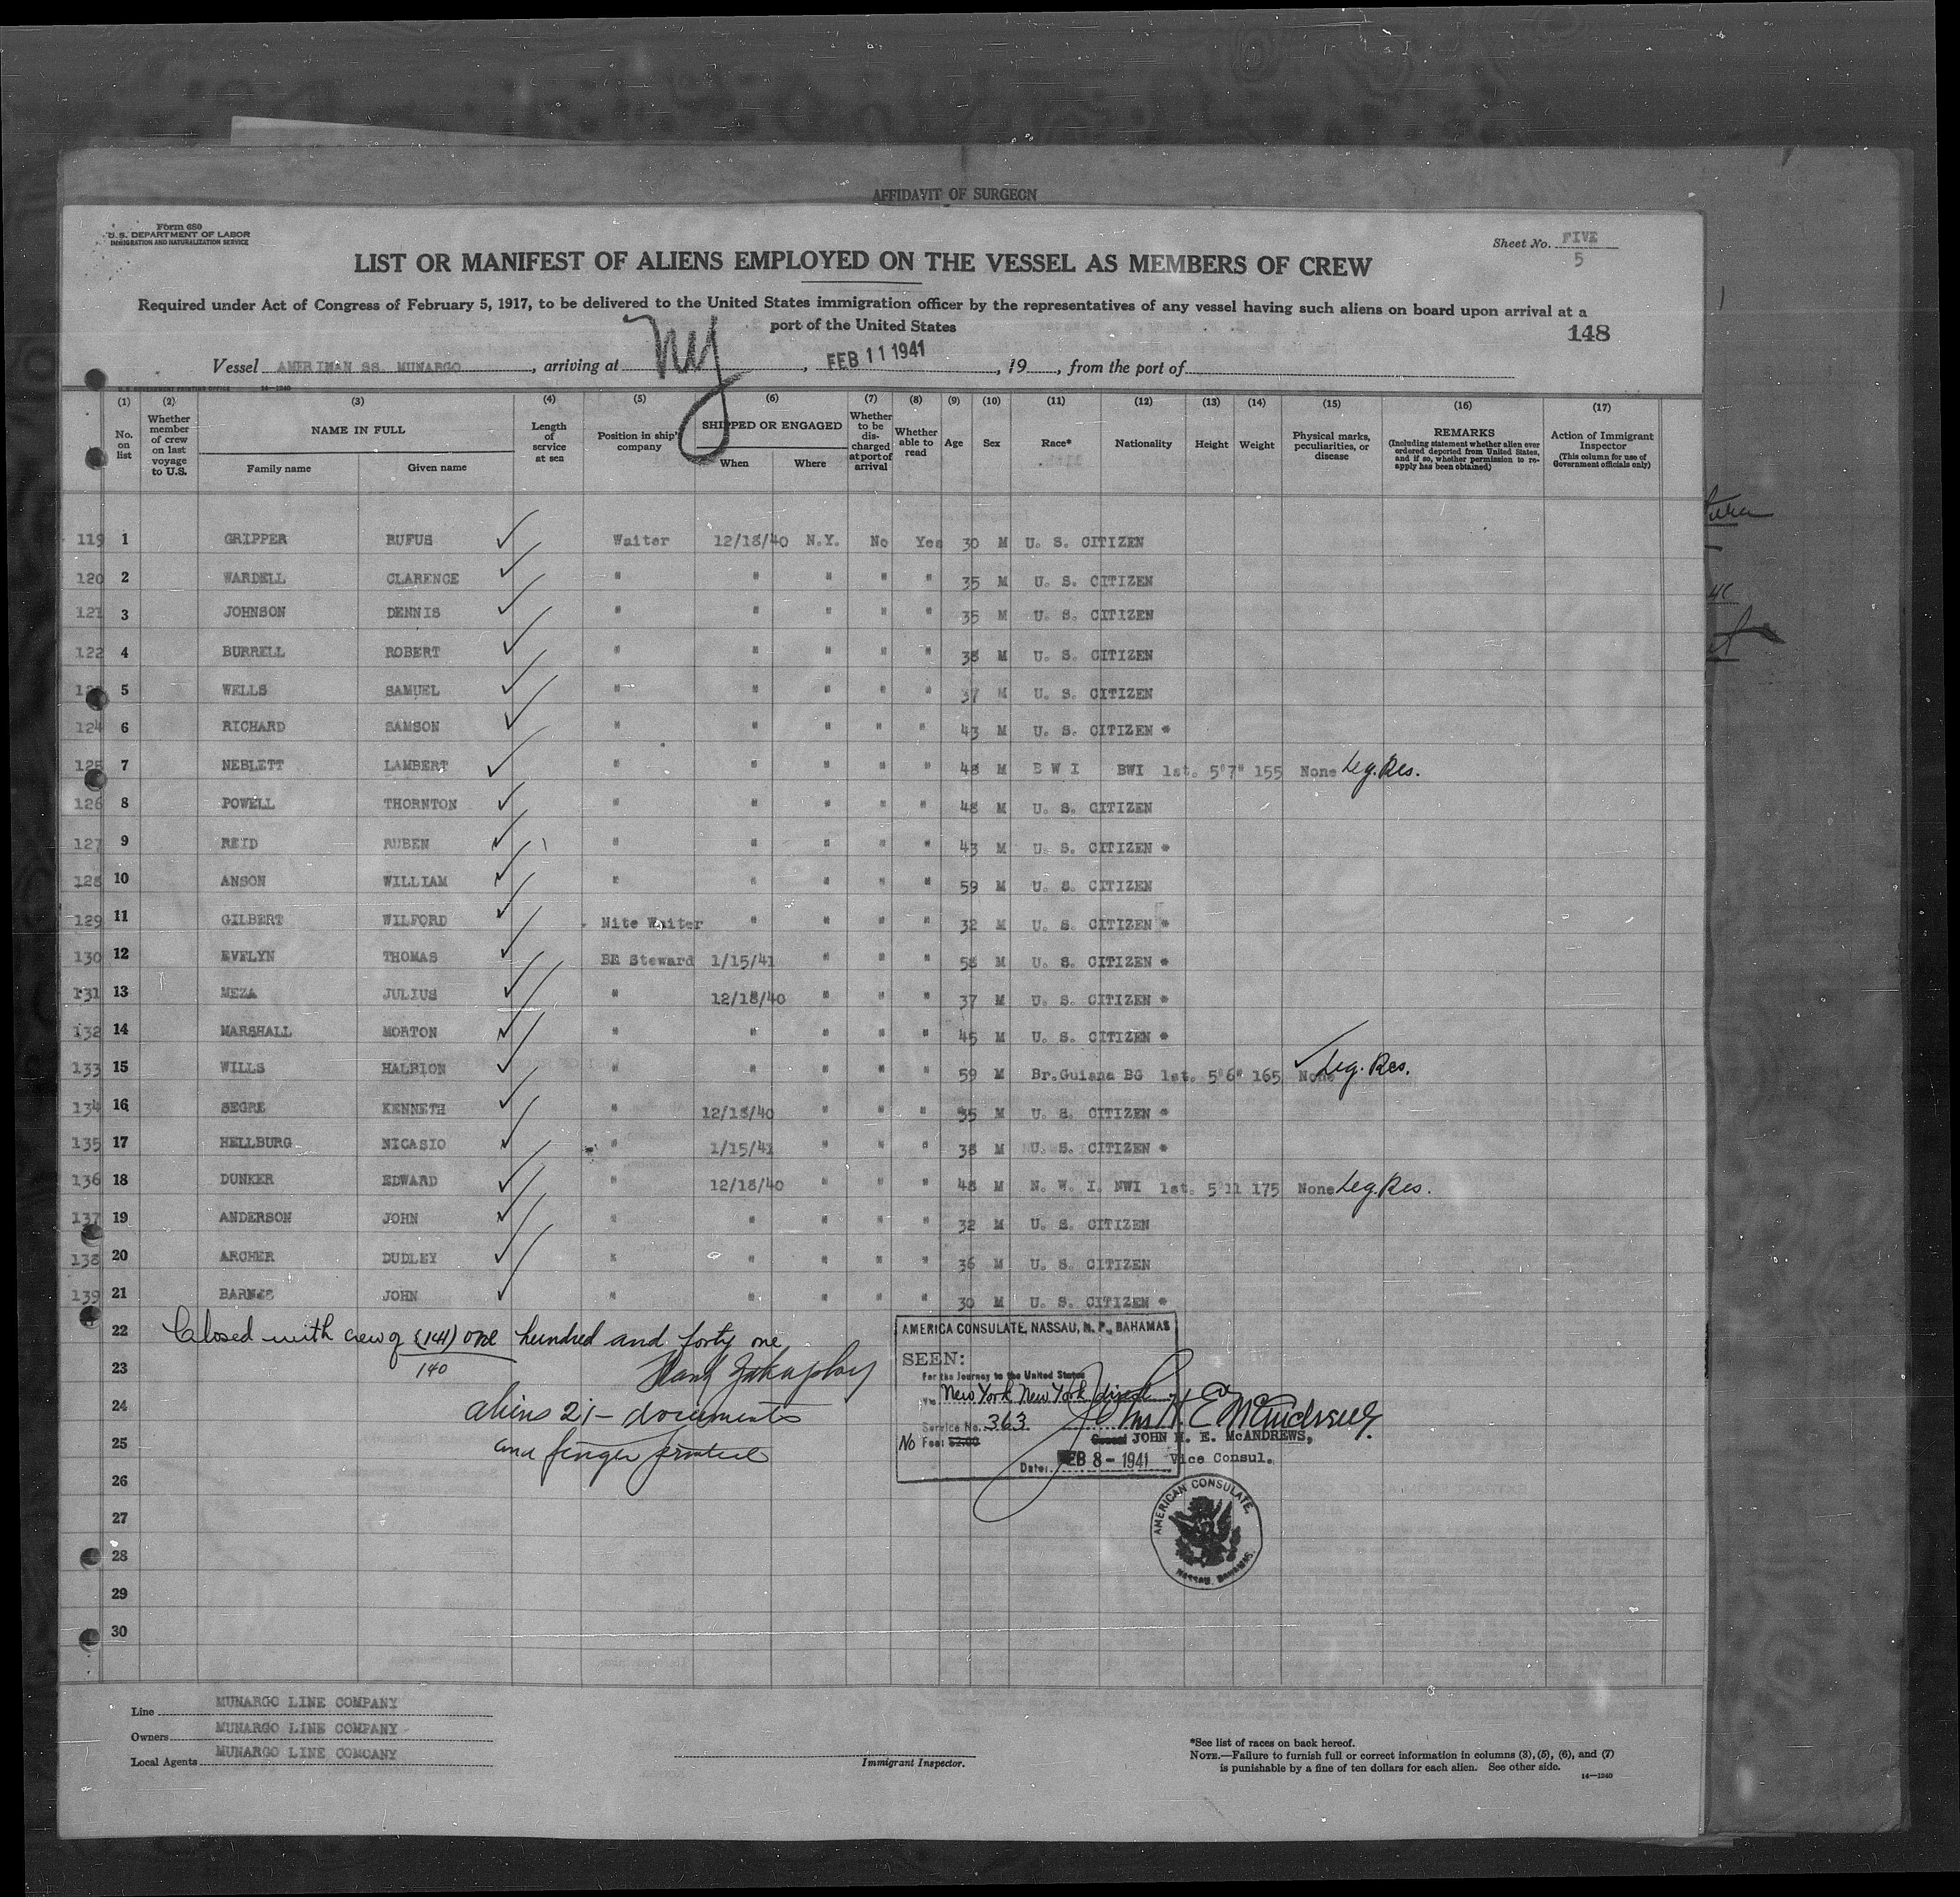 AFFIDAVIT OF SURGEON
Form 680
U.S. DEPARTMENT OF LABOR
IMMIGRATION AND NATURALIZATION SERVICE
Sheet No. FIVE
5
LIST OR MANIFEST OF ALIENS EMPLOYED ON THE VESSEL AS MEMBERS OF CREW
Required under Act of Congress of February 5, 1917, to be delivered to the United States immigration officer by the representatives of any vessel having such aliens on board upon arrival at a
port of the United States
148
Vessel AMERIMAN SS. MUNARGO, arriving at NY, FEB 11 1941, 19, from the port of
U.S. GOVERNMENT PRINTING OFFICE 14—1240
(1) (2) (3) (4) (5) (6) (7) (8) (9) (10) (11) (12) (13) (14) (15) (16) (17)
No. on list
Whether member of crew on last voyage to U.S.
NAME IN FULL
Family name Given name
Length of service at sea
Position in ship's company
SHIPPED OR ENGAGED
When Where
Whether to be discharged at port of arrival
Whether able to read
Age Sex Race* Nationality Height Weight
Physical marks, peculiarities, or disease
REMARKS
(Including statement whether alien ever ordered deported from United States, and if so, whether permission to reapply has been obtained)
Action of Immigrant Inspector
(This column for use of Government officials only)
119 1 GRIPPER RUFUS Waiter 12/18/40 N.Y. No Yes 30 M U. S. CITIZEN
120 2 WARDELL CLARENCE " " " " " 35 M U. S. CITIZEN
121 3 JOHNSON DENNIS " " " " " 35 M U. S. CITIZEN
122 4 BURRELL ROBERT " " " " " 38 M U. S. CITIZEN
5 WELLS SAMUEL " " " " " 37 M U. S. CITIZEN
124 6 RICHARD SAMSON " " " " " 43 M U. S. CITIZEN *
125 7 NEBLETT LAMBERT " " " " " 48 M B W I BWI 1st. 5'7" 155 None Leg. Res.
126 8 POWELL THORNTON " " " " " 48 M U. S. CITIZEN
127 9 REID RUBEN " " " " " 43 M U. S. CITIZEN *
128 10 ANSON WILLIAM " " " " " 59 M U. S. CITIZEN
129 11 GILBERT WILFORD Nite Waiter " " " " 32 M U. S. CITIZEN *
130 12 EVELYN THOMAS BR Steward 1/15/41 " " " 58 M U. S. CITIZEN *
131 13 MEZA JULIUS " 12/18/40 " " " 37 M U. S. CITIZEN *
132 14 MARSHALL MORTON " " " " " 45 M U. S. CITIZEN *
133 15 WILLS HALBION " " " " " 59 M Br.Guiana BG 1st. 5'6" 165 None Leg. Res.
134 16 SEGRE KENNETH " 12/18/40 " " " 35 M U. S. CITIZEN *
135 17 HELLBURG NICASIO " 1/15/41 " " " 38 M U. S. CITIZEN *
136 18 DUNKER EDWARD " 12/18/40 " " " 48 M N. W. I. NWI 1st. 5'11 175 None Leg. Res.
137 19 ANDERSON JOHN " " " " " 32 M U. S. CITIZEN
138 20 ARCHER DUDLEY " " " " " 36 M U. S. CITIZEN
139 21 BARNES JOHN " " " " " 30 M U. S. CITIZEN *
22 Closed with crew of (141) one hundred and forty one
23 140
24 aliens 21 – documents
25 and finger printed
26
27
28
29
30
AMERICA CONSULATE, NASSAU, N. P., BAHAMAS
SEEN:
For the Journey to the United States
Via New York New York direct
Service No. 363
No Fee: $2.00
John H. E. McAndrews
Consul JOHN H. E. McANDREWS,
Date: FEB 8 - 1941 Vice Consul.
AMERICAN CONSULATE.
NASSAU, BAHAMAS.
Line MUNARGO LINE COMPANY
Owners MUNARGO LINE COMPANY
Local Agents MUNARGO LINE COMOANY
Immigrant Inspector.
*See list of races on back hereof.
NOTE.—Failure to furnish full or correct information in columns (3), (5), (6), and (7)
is punishable by a fine of ten dollars for each alien. See other side.
14—1240